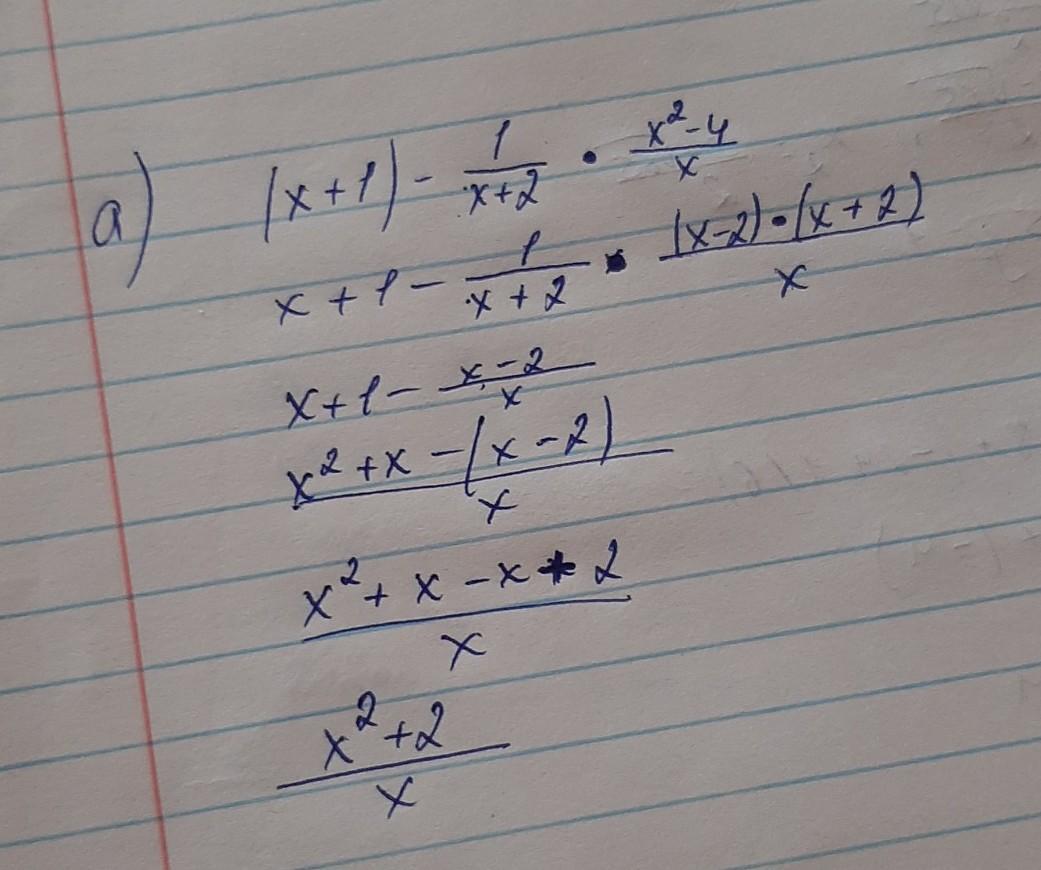 a) (x+1) - \frac{1}{x+2} • \frac{x^2-4}{x}
x+1 - \frac{1}{x+2} • \frac{(x-2)•(x+2)}{x}
x+1 - \frac{x-2}{x}
\frac{x^2+x-(x-2)}{x}
\frac{x^2+x-x+2}{x}
\frac{x^2+2}{x}